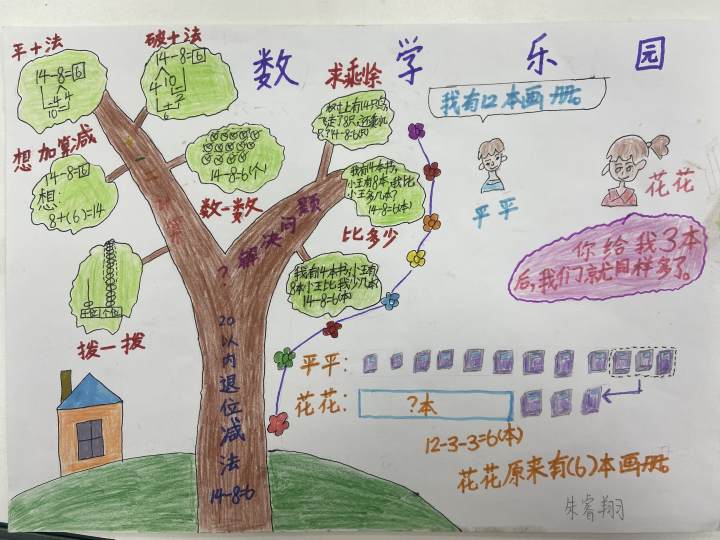 数学乐园
平十法
14-8=6
4 4
10
破十法
14-8=6
4 10
2
6
想加算减
14-8=6
想:
8+(6)=14
14-8=6(个)
数一数
拨一拨
十位 个位
求剩余
树上有14只鸟,
飞走了8只,还剩几
只?14-8=6(只)
我有14本书,
小王有8本,我比
小王多几本?
14-8=6(本)
比多少
我有14本书,小王有
8本,小王比我少几本?
14-8=6(本)
计算
?解决问题
20以内退位减法
14-8=6
我有口本画册。
平平
花花
你给我3本
后,我们就同样多了。
平平:
花花:
?本
12-3-3=6(本)
花花原来有(6)本画册。
朱睿翔